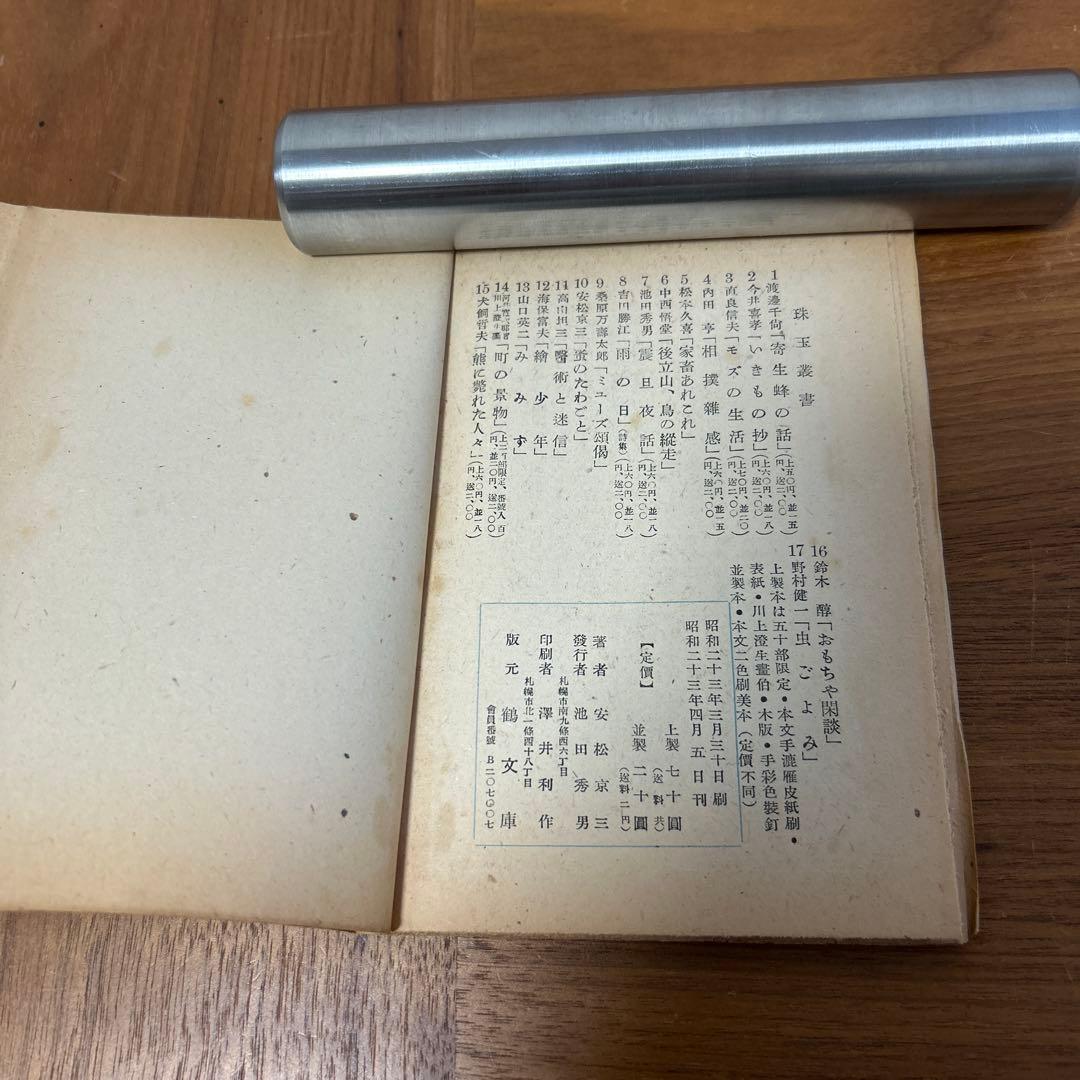 珠玉叢書
1 渡邊千尙「寄生蜂の話」(上五〇円、並一五円、送二、〇〇)
2 今井喜孝「いきもの抄」(上六〇円、並一八円、送二、〇〇)
3 直良信夫「モズの生活」(上七〇円、並二〇円、送二、〇〇)
4 內田 亨「相撲雜感」(上六〇円、並一五円、送二、〇〇)
5 松本久喜「家畜あれこれ」
6 中西悟堂「後立山、鳥の縱走」
7 池田秀男「震旦夜話」(上六〇円、並一八円、送二、〇〇)
8 吉田勝江「雨の日」(詩集)(上六〇円、並一八円、送二、〇〇)
9 桑原万壽太郎「ミューズ頌偈」
10 安松京三「蛩のたわごと」
11 高山坦三「醫術と迷信」
12 海保富夫「繪少年」
13 山口英二「みみず」
14 川上澄生畫「町の景物」(上二百部限定、番號入百円、並二〇円、送二、〇〇)
15 犬飼哲夫「熊に斃れた人々」(上六〇円、並一八円、送二、〇〇)
16 鈴木 醇「おもちゃ閑談」
17 野村健一「虫ごよみ」
上製本は五十部限定・本文手漉雁皮紙刷・
表紙・川上澄生畫伯・木版・手彩色裝釘
並製本・本文二色刷美本(定價不同)
昭和二十三年三月三十日刷
昭和二十三年四月五日刊
【定價】
上製 七十圓(送料共)
並製 二十圓(送料二円)
著者 安松京三
發行者 池田秀男
札幌市南九條西六丁目
印刷者 澤井利作
札幌市北一條西十八丁目
版元 鶴文庫
會員番號 B二〇七〇〇七